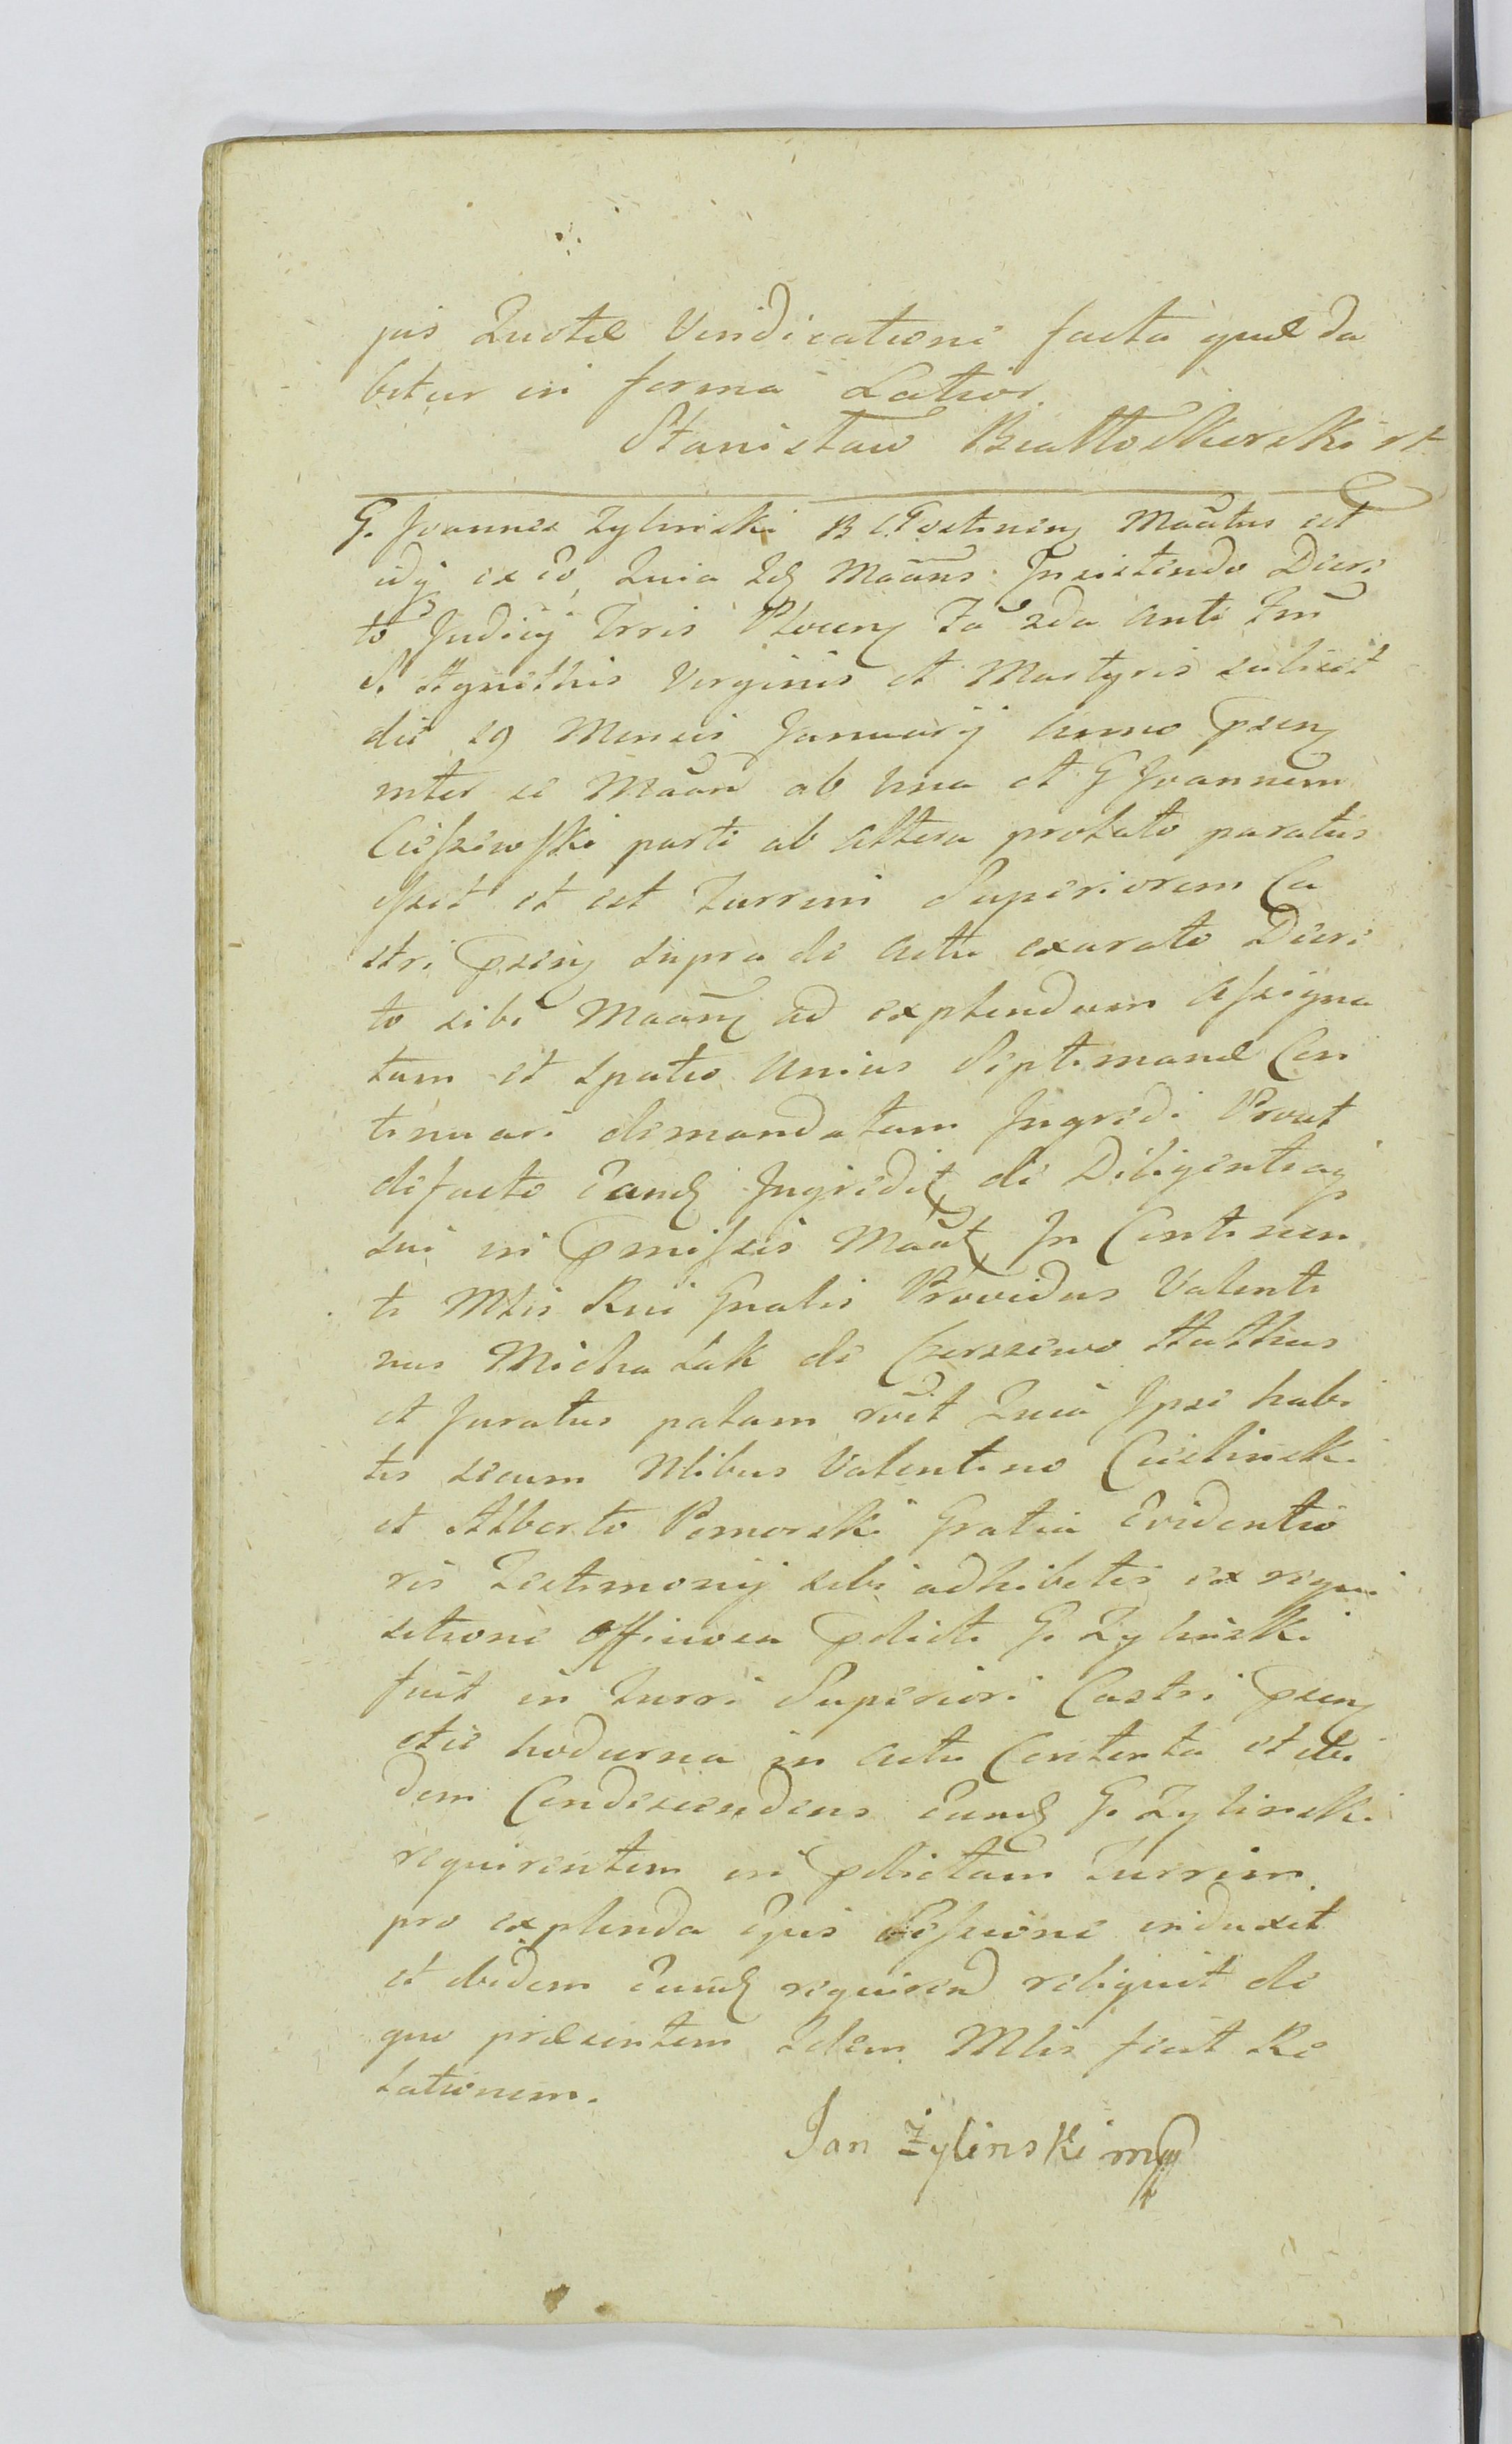 jus Quotae Vindicatione facta quae da
bitur in forma Latior.
Stanisław Białłoskorski rt
G. Joannes Zylinski B Gostinen Maātus est
idq ex eo, Quia Idē Maāns Insistendo Decre
to Judicij Trris Plocen Fa 2da Ante Fm
S. Agnethis Virginis et Martyris scilicet
die 19 Mensis January Anno Psen
inter se Maān ab una et G Joannem
Cieszewski parte ab altera prolato paratus
esset et est Turrim Superiorem Ca
stri Psen supra de actu exarato Decre
to sibi Maān ad explendum Assigna
tam et spatio Unius Septimanae Con
tinuari demandatam Ingredi Prout
defacto Eand Ingredit de Diligentiaq
sui in Pmissis Maāt In Continen
ti Mlis Rni Gnalis Providus Valenti
nus Michalak de Czerszewo Authus
et Juratus palam rvit Quia Ipse habi
tis secum Nlibus Valentino Cieslinski
et Alberto Pomorski Gratia Evidentio
ris Testimonij sibi adhibitis ex requi
sitione Officiosa Pdicti G. Zylinski
fuit in Turri Superiori Castri Psen
die hodierna in Actu Contenta et ibi
dem Condescendens Eund G. Zylinski
requirentem in Pdictam Turrim
pro explenda Ejus Sessione induxit
et ibidem Eund requiren reliquit de
quo praesentem Idem Mlis fecit Re
lationem.
Jan Żylinski mp